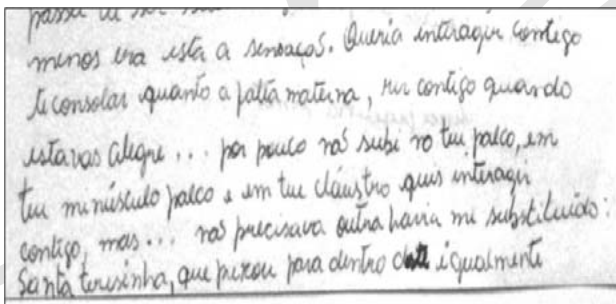 menos era esta a sensação. Queria interagir contigo
te consolar quanto a falta materna, rir contigo quando
estavas alegre ... por pouco não subi no teu palco, em
teu minúsculo palco e em teu claustro quis interagir
contigo, mas ... não precisava outra havia me substituído:
Santa teresinha, que puxou para dentro igualmente